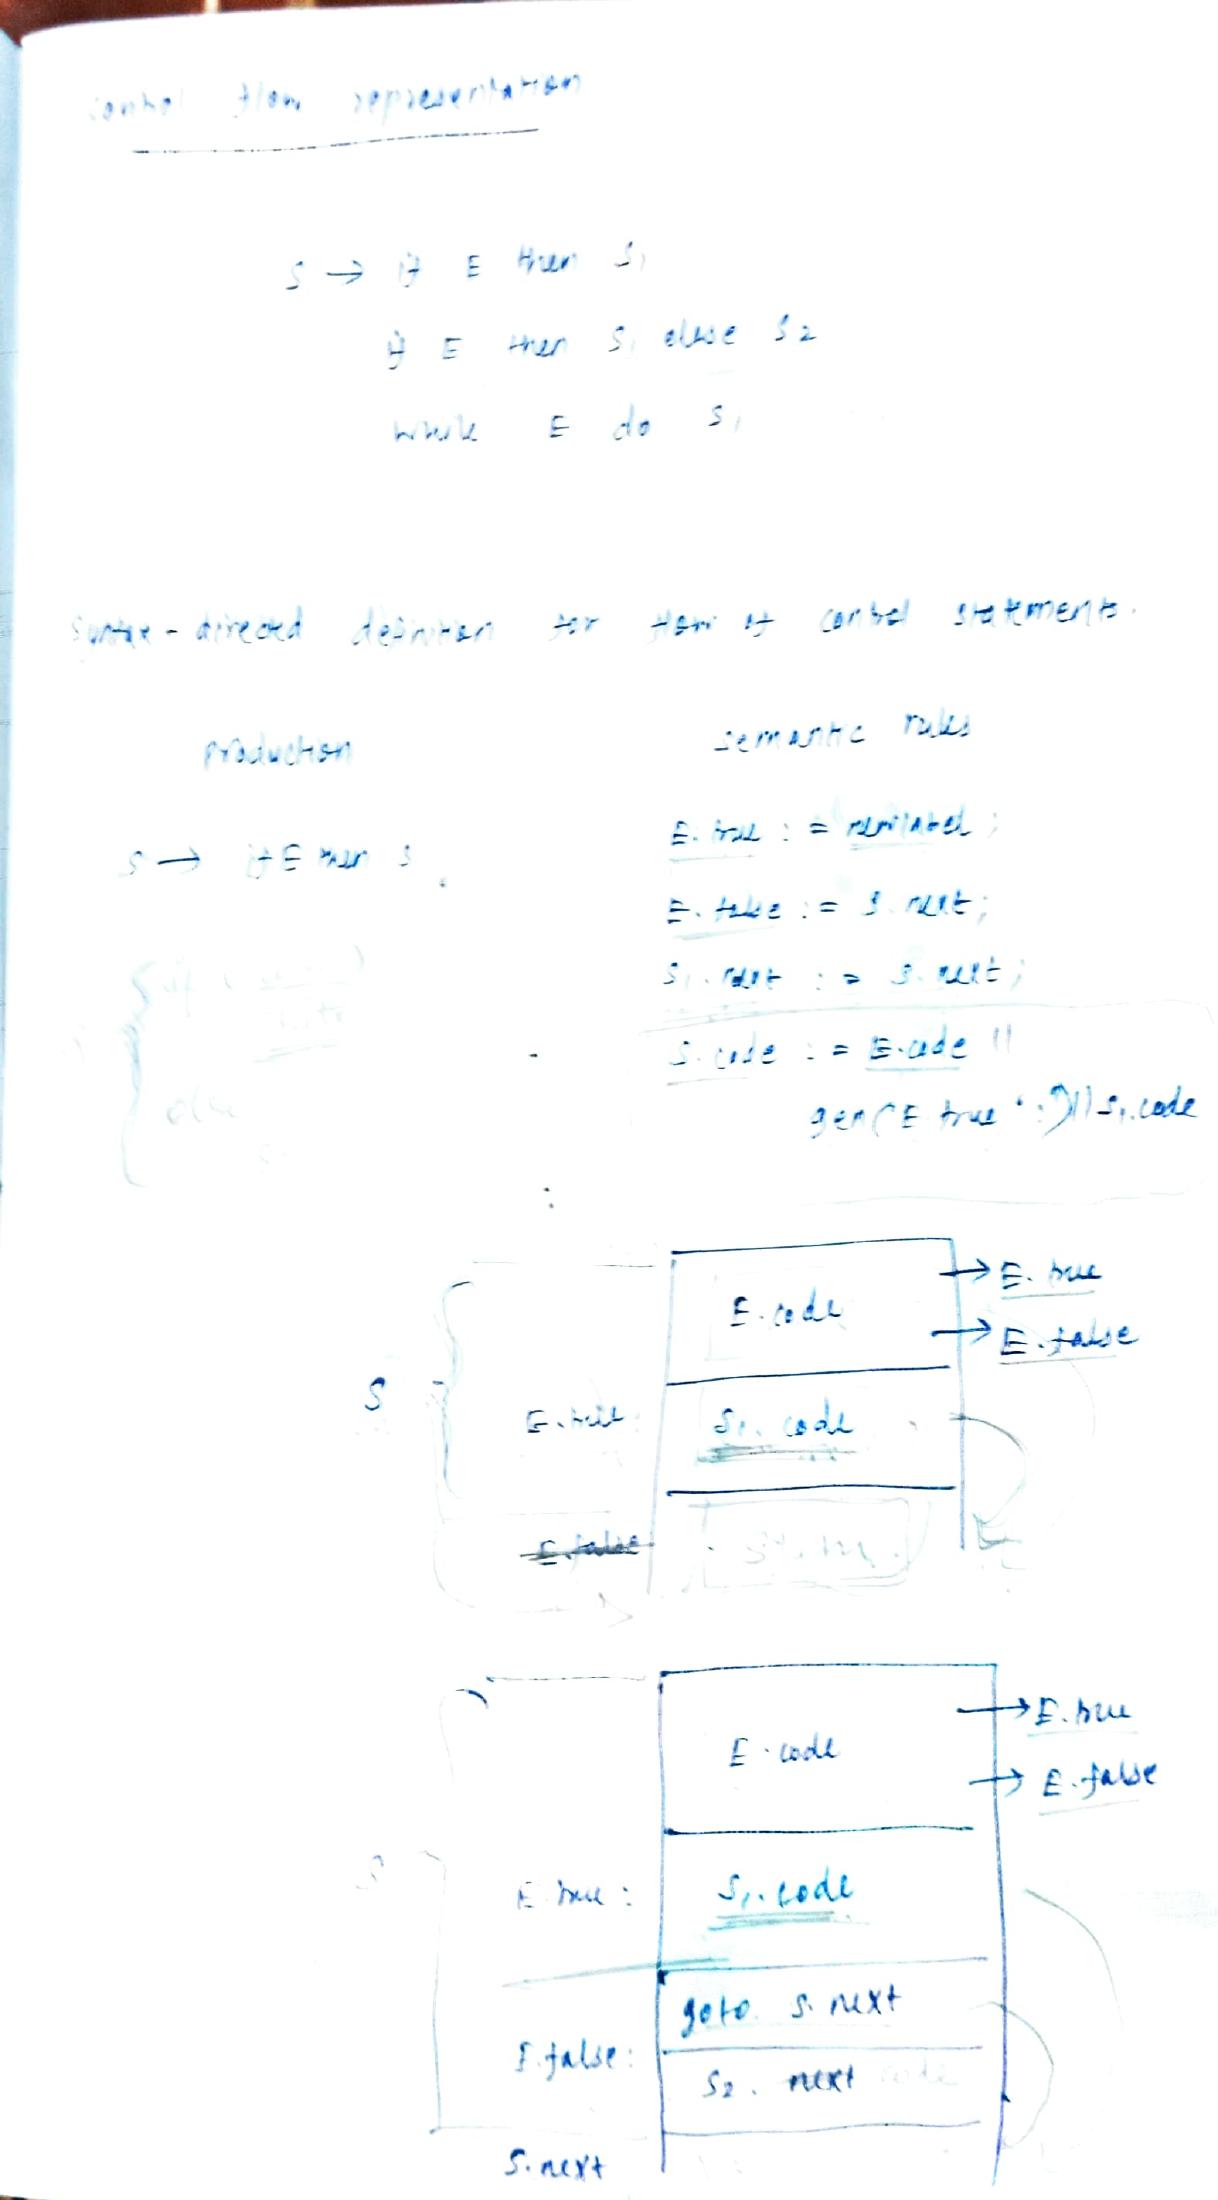 control flow representation
S → if E then S1
if E then S1 else S2
while E do S1
Syntax-directed definition for flow of control statements.
production semantic rules
S → if E then S1 E.true := newlabel;
E.false := S.next;
S1.next := S.next;
S.code := E.code ||
gen(E.true ':') || S1.code
if (
else
E.code → E.true
→ E.false
S
E.true: S1.code
E.false
E.code → E.true
→ E.false
S
E.true: S1.code
goto S.next
E.false: S2. next code
S.next